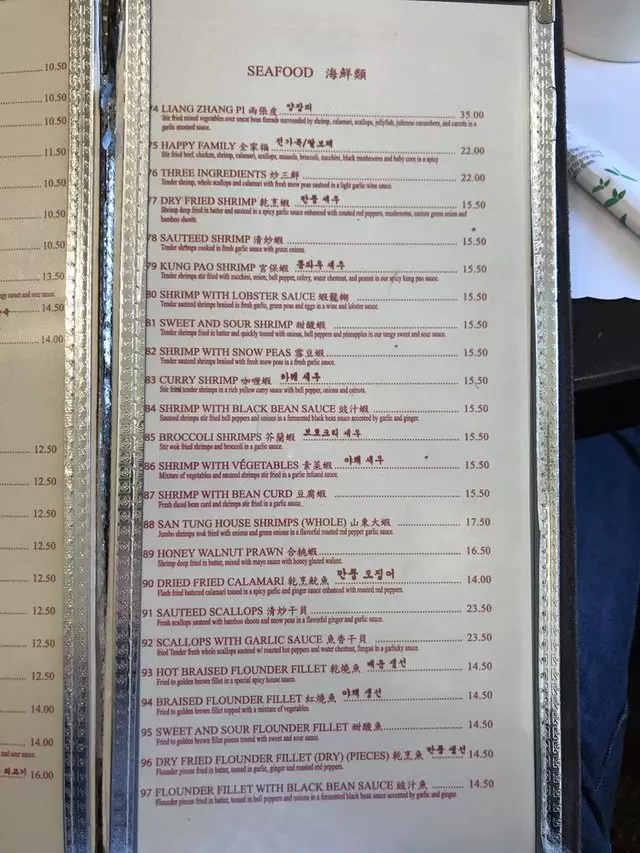 10.50
10.50
10.50
11.50
10.50
10.50
10.50
13.50
gy sweet and sour sauce.
14.50
14.00
12.50
12.50
12.50
12.50
12.50
12.50
12.50
12.50
14.00
14.00
and sour sauce.
16.00
SEAFOOD 海鮮類
74 LIANG ZHANG PI 兩張皮 양장피 35.00
Stir fried mixed vegetables over uncut bean threads surrounded by shrimp, calamari, scallops, jellyfish, julienne cucumbers, and carrots in a
garlic mustard sauce.
75 HAPPY FAMILY 全家福 전가복/팔보채 22.00
Stir fried beef, chicken, shrimp, calamari, scallops, mussels, broccoli, zucchini, black mushrooms and baby corn in a spicy
76 THREE INGREDIENTS 炒三鮮 22.00
Tender shrimp, whole scallops and calamari with fresh snow peas sauteed in a light garlic wine sauce.
77 DRY FRIED SHRIMP 乾烹蝦 깐풍새우 15.50
Shrimp deep fried in batter and sauteed in a spicy garlic sauce enhanced with roasted red peppers, mushrooms, carrots green onion and
bamboo shoots.
78 SAUTEED SHRIMP 清炒蝦 15.50
Tender shrimps cooked in fresh garlic sauce with green onions.
79 KUNG PAO SHRIMP 宮保蝦 쿵파우 새우 15.50
Tender shrimps stir fried with zucchini, onion, bell pepper, celery, water chestnut, and peanut in our spicy kung pao sauce.
80 SHRIMP WITH LOBSTER SAUCE 蝦龍糊 15.50
Tender sauteed shrimps braised in fresh garlic, green peas and eggs in a wine and lobster sauce.
81 SWEET AND SOUR SHRIMP 甜酸蝦 15.50
Tender shrimps fried in batter and quickly tossed with onions, bell peppers and pineapples in our tangy sweet and sour sauce.
82 SHRIMP WITH SNOW PEAS 雪豆蝦 15.50
Tender sauteed shrimps braised with fresh snow peas in a fresh garlic sauce.
83 CURRY SHRIMP 咖喱蝦 카레 새우 15.50
Stir fried tender shrimps in a rich yellow curry sauce with bell pepper, onions and carrots.
84 SHRIMP WITH BLACK BEAN SAUCE 豉汁蝦 15.50
Sauteed shrimps stir fried bell peppers and onions in a fermented black bean sauce accented by garlic and ginger.
85 BROCCOLI SHRIMPS 芥蘭蝦 브로코리 새우 15.50
Stir wok fried shrimps and broccoli in a garlic sauce.
86 SHRIMP WITH VEGETABLES 素菜蝦 야채 새우 15.50
Mixture of vegetables and sauteed shrimps stir fried in a garlic infused sauce.
87 SHRIMP WITH BEAN CURD 豆腐蝦 15.50
Fresh diced bean curd and shrimps stir fried in a garlic sauce.
88 SAN TUNG HOUSE SHRIMPS (WHOLE) 山東大蝦 17.50
Jumbo shrimps wok fried with onions and green onions in a flavorful roasted red pepper garlic sauce.
89 HONEY WALNUT PRAWN 合桃蝦 16.50
Shrimp deep fried in batter, mixed with mayo sauce with honey glazed walnuts.
90 DRIED FRIED CALAMARI 乾烹魷魚 깐풍 오징어 14.00
Flash fried battered calamari tossed in a spicy garlic and ginger sauce enhanced with roasted red peppers.
91 SAUTEED SCALLOPS 清炒干貝 23.50
Fresh scallops sauteed with bamboo shoots and snow peas in a flavorful ginger and garlic sauce.
92 SCALLOPS WITH GARLIC SAUCE 魚香干貝 23.50
fried Tender fresh whole scallops sauteed w/ roasted hot peppers and water chestnut, fungus in a garlicky sauce.
93 HOT BRAISED FLOUNDER FILLET 乾燒魚 매운 생선 14.50
Fried to golden brown fillet in a special spicy house sauce.
94 BRAISED FLOUNDER FILLET 紅燒魚 야채 생선 14.50
Fried to golden brown fillet topped with a mixture of vegetables.
95 SWEET AND SOUR FLOUNDER FILLET 甜酸魚 14.50
Fried to golden brown fillet pieces tossed with sweet and sour sauce.
96 DRY FRIED FLOUNDER FILLET (DRY) (PIECES) 乾烹魚 깐풍 생선 14.50
Flounder pieces fried in batter, tossed in garlic, ginger and roasted red peppers.
97 FLOUNDER FILLET WITH BLACK BEAN SAUCE 豉汁魚 14.50
Flounder pieces fried in batter, tossed in bell peppers and onions in a fermented black bean sauce accented by garlic and ginger.